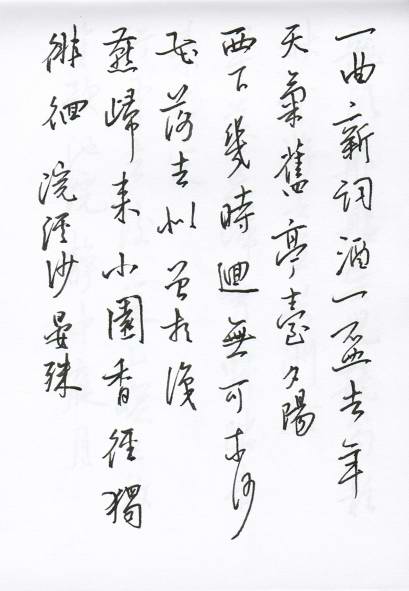 一曲新詞酒一盃去年
天氣舊亭臺夕陽
西下幾時迴無可奈何
花落去似曾相識
燕歸來小園香徑獨
徘徊 浣溪沙晏殊